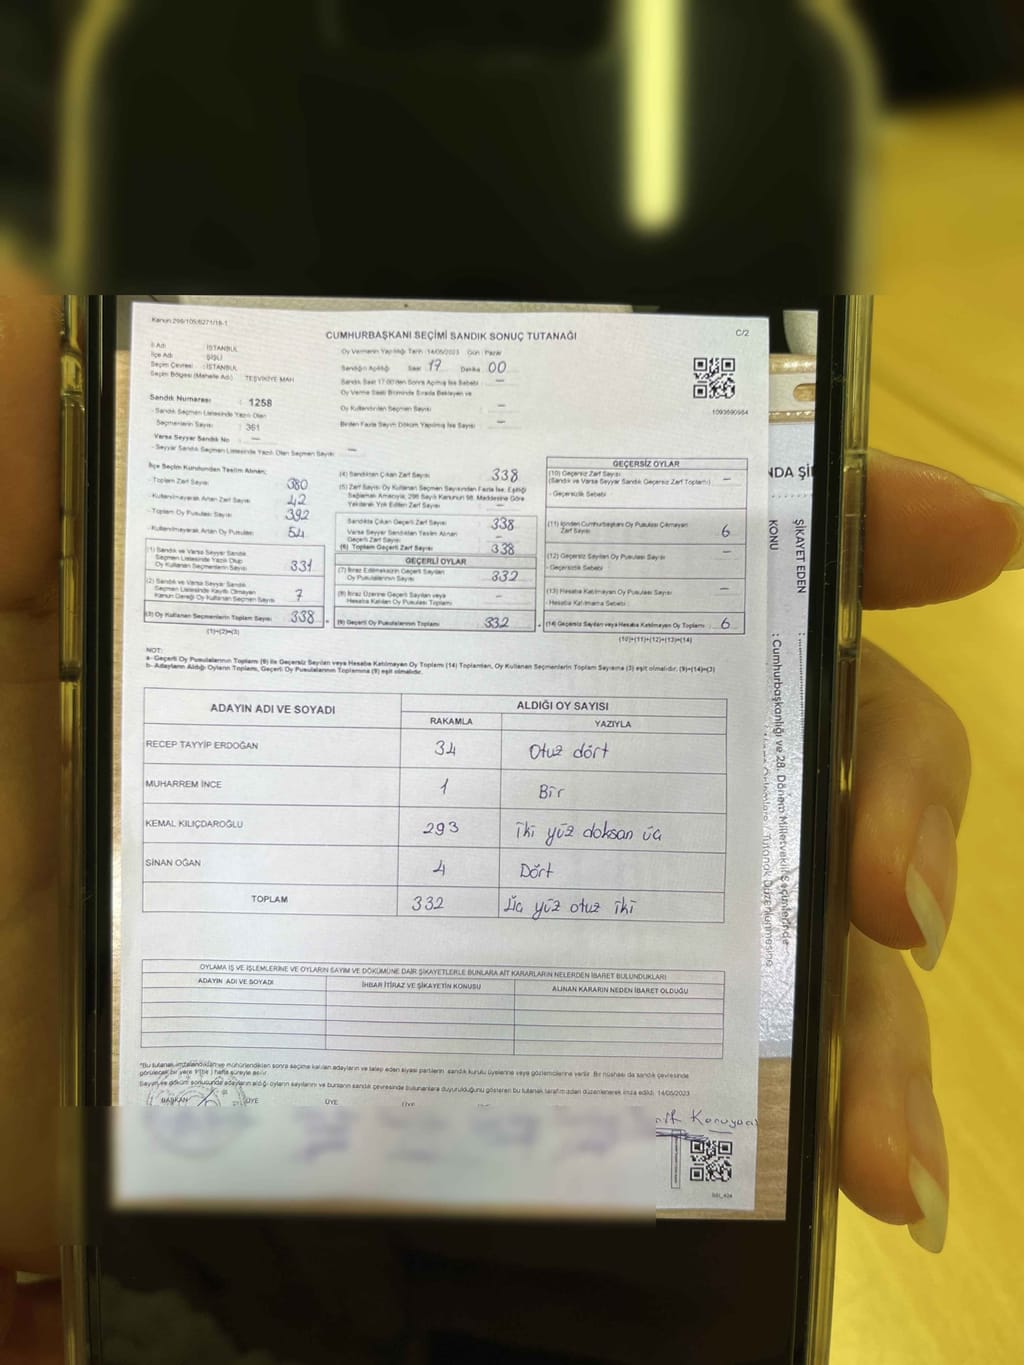 Kanun:298/105/6271/18-1
C/2
CUMHURBAŞKANI SEÇİMİ SANDIK SONUÇ TUTANAĞI
İl Adı : İSTANBUL
İlçe Adı : ŞİŞLİ
Seçim Çevresi : İSTANBUL
Seçim Bölgesi (Mahalle Adı) : TEŞVİKİYE MAH
Oy Vermenin Yapıldığı Tarih :14/05/2023 Gün : Pazar
Sandığın Açıldığı Saat 17 Dakika 00
Sandık Saat 17:00'den Sonra Açılmış İse Sebebi —
Oy Verme Saati Bitiminde Sırada Bekleyen ve
Oy Kullandırılan Seçmen Sayısı —
Birden Fazla Sayım Döküm Yapılmış İse Sayısı —
1093690964
Sandık Numarası : 1258
- Sandık Seçmen Listesinde Yazılı Olan
Seçmenlerin Sayısı : 361
Varsa Seyyar Sandık No —
- Seyyar Sandık Seçmen Listesinde Yazılı Olan Seçmen Sayısı —
İlçe Seçim Kurulundan Teslim Alınan;
- Toplam Zarf Sayısı 380
- Kullanılmayarak Artan Zarf Sayısı 42
- Toplam Oy Pusulası Sayısı 392
- Kullanılmayarak Artan Oy Pusulası 54
(1) Sandık ve Varsa Seyyar Sandık
Seçmen Listesinde Yazılı Olup
Oy Kullanan Seçmenlerin Sayısı 331
(2) Sandık ve Varsa Seyyar Sandık
Seçmen Listesinde Kayıtlı Olmayan
Kanun Gereği Oy Kullanan Seçmen Sayısı 7
(3) Oy Kullanan Seçmenlerin Toplam Sayısı 338
(1)+(2)=(3)
(4) Sandıktan Çıkan Zarf Sayısı 338
(5) Zarf Sayısı Oy Kullanan Seçmen Sayısından Fazla İse, Eşitliği
Sağlamak Amacıyla, 298 Sayılı Kanunun 98. Maddesine Göre
Yakılarak Yok Edilen Zarf Sayısı —
Sandıkta Çıkan Geçerli Zarf Sayısı 338
Varsa Seyyar Sandıktan Teslim Alınan
Geçerli Zarf Sayısı —
(6) Toplam Geçerli Zarf Sayısı 338
GEÇERLİ OYLAR
(7) İtiraz Edilmeksizin Geçerli Sayılan
Oy Pusulalarının Sayısı 332
(8) İtiraz Üzerine Geçerli Sayılan veya
Hesaba Katılan Oy Pusulası Toplamı —
(9) Geçerli Oy Pusulalarının Toplamı 332
GEÇERSİZ OYLAR
(10) Geçersiz Zarf Sayısı
(Sandık ve Varsa Seyyar Sandık Geçersiz Zarf Toplamı) —
- Geçersizlik Sebebi
(11) İçinden Cumhurbaşkanı Oy Pusulası Çıkmayan
Zarf Sayısı 6
(12) Geçersiz Sayılan Oy Pusulası Sayısı —
- Geçersizlik Sebebi
(13) Hesaba Katılmayan Oy Pusulası Sayısı —
- Hesaba Katılmama Sebebi
(14) Geçersiz Sayılan veya Hesaba Katılmayan Oy Toplamı 6
(10)+(11)+(12)+(13)=(14)
NOT:
a- Geçerli Oy Pusulalarının Toplamı (9) ile Geçersiz Sayılan veya Hesaba Katılmayan Oy Toplamı (14) Toplamları, Oy Kullanan Seçmenlerin Toplam Sayısına (3) eşit olmalıdır. (9)+(14)=(3)
b- Adayların Aldığı Oyların Toplamı, Geçerli Oy Pusulalarının Toplamına (9) eşit olmalıdır.
ADAYIN ADI VE SOYADI ALDIĞI OY SAYISI
RAKAMLA YAZIYLA
RECEP TAYYİP ERDOĞAN 34 Otuz dört
MUHARREM İNCE 1 Bir
KEMAL KILIÇDAROĞLU 293 iki yüz doksan üç
SİNAN OĞAN 4 Dört
TOPLAM 332 Üç yüz otuz iki
OYLAMA İŞ VE İŞLEMLERİNE VE OYLARIN SAYIM VE DÖKÜMÜNE DAİR ŞİKAYETLERLE BUNLARA AİT KARARLARIN NELERDEN İBARET BULUNDUKLARI
ADAYIN ADI VE SOYADI İHBAR İTİRAZ VE ŞİKAYETİN KONUSU ALINAN KARARIN NEDEN İBARET OLDUĞU
"Bu tutanak imzalandıktan ve mühürlendikten sonra seçime katılan adayların ve talep eden siyasi partilerin sandık kurulu üyelerine veya gözlemcilerine verilir. Bir nüshası da sandık çevresinde
görülecek bir yere 1 (bir) hafta süreyle asılır.
Sayım ve döküm sonucunda adayların aldığı oyların sayılarını ve bunların sandık çevresinde bulunanlara duyurulduğunu gösteren bu tutanak tarafımızdan düzenlenerek imza edildi. 14/05/2023
BAŞKAN ÜYE ÜYE
NDA Şİ
ŞİKAYET EDEN
KONU
: Cumhurbaşkanlığı ve 28. Dönem Milletvekili Seçimlerinde
Tutanak Düzenlenmesine